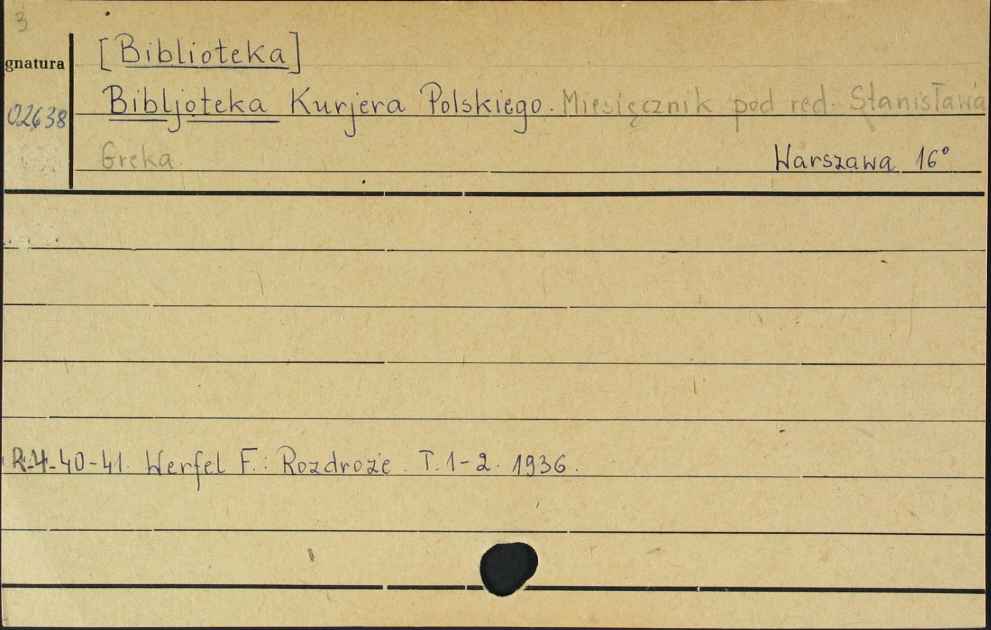 3
[Biblioteka]
gnatura
Bibljoteka Kurjera Polskiego. Miesięcznik pod red. Stanisława
02638
Greka. Warszawa 16°
R.4. 40-41. Werfel F.: Rozdroże. T.1-2. 1936.